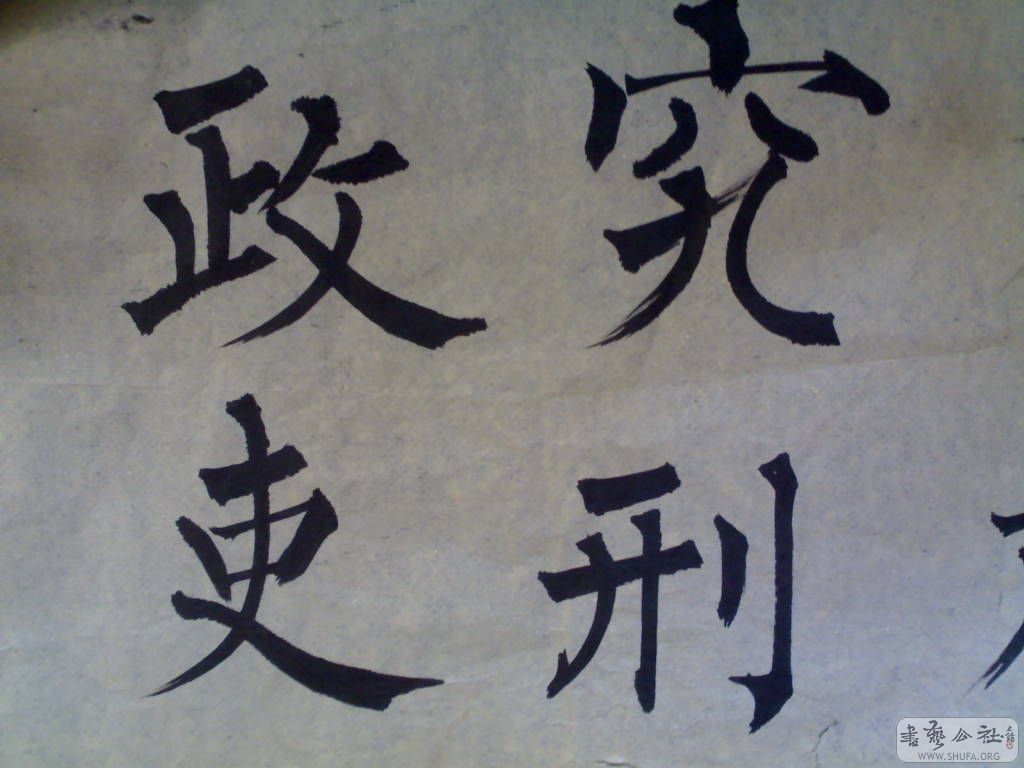 究刑
政吏
書藝公社
WWW.SHUFA.ORG